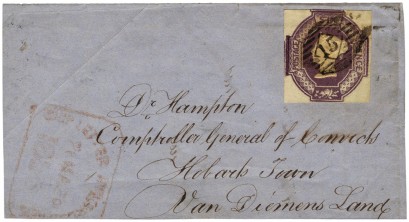 Dr Hampton
Comptroller General of Convicts
Hobart Town
Van Diemens Land